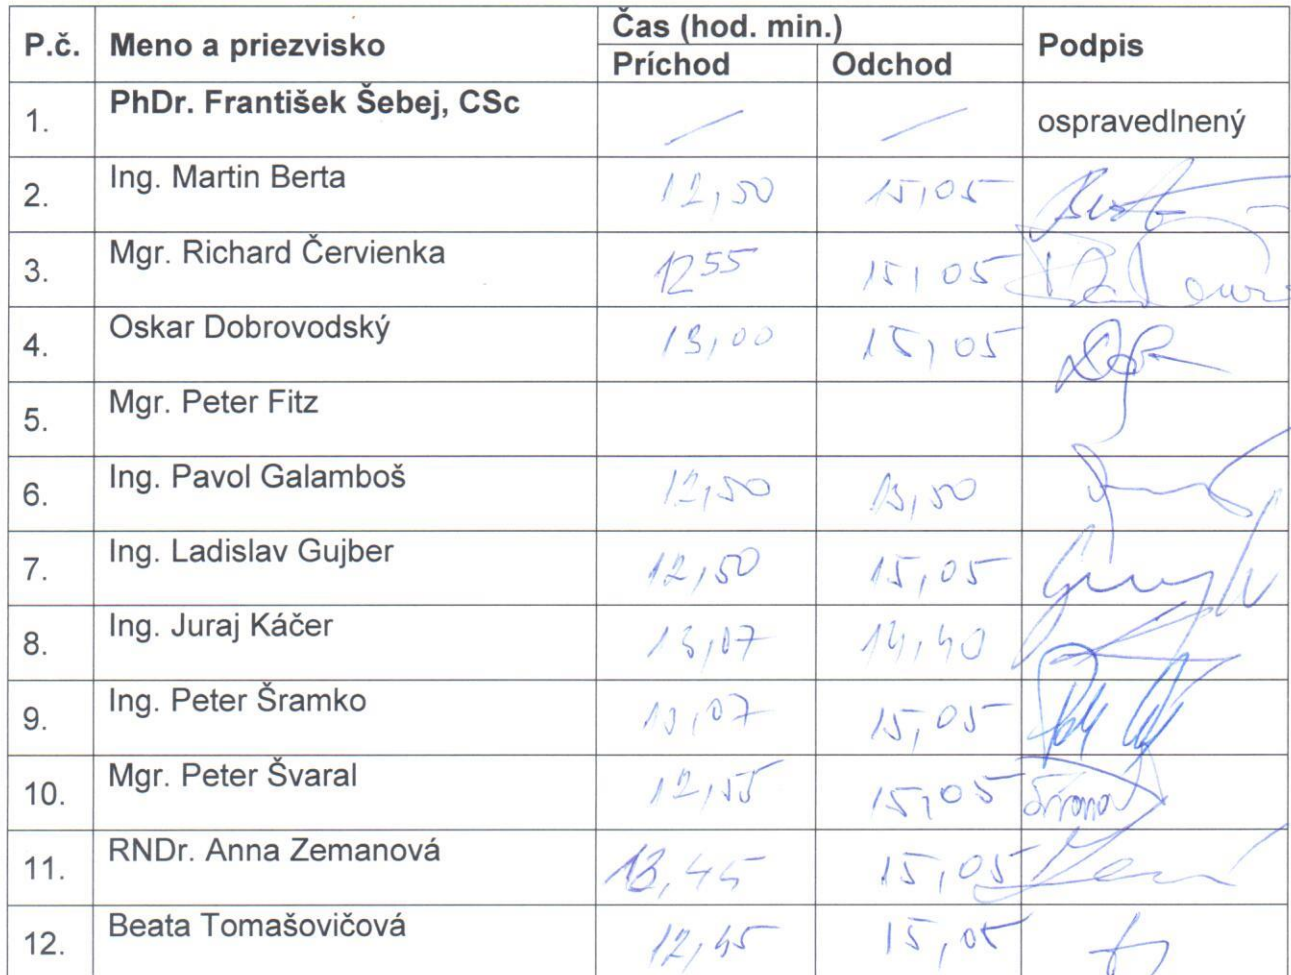 P.č. Meno a priezvisko Čas (hod. min.) Podpis
Príchod Odchod
1. PhDr. František Šebej, CSc — — ospravedlnený
2. Ing. Martin Berta 12,50 15,05
3. Mgr. Richard Červienka 1255 15,05
4. Oskar Dobrovodský 13,00 15,05
5. Mgr. Peter Fitz
6. Ing. Pavol Galamboš 12,50 13,50
7. Ing. Ladislav Gujber 12,50 15,05
8. Ing. Juraj Káčer 13,07 14,40
9. Ing. Peter Šramko 13,07 15,05
10. Mgr. Peter Švaral 12,55 15,05
11. RNDr. Anna Zemanová 13,45 15,05
12. Beata Tomašovičová 12,45 15,05